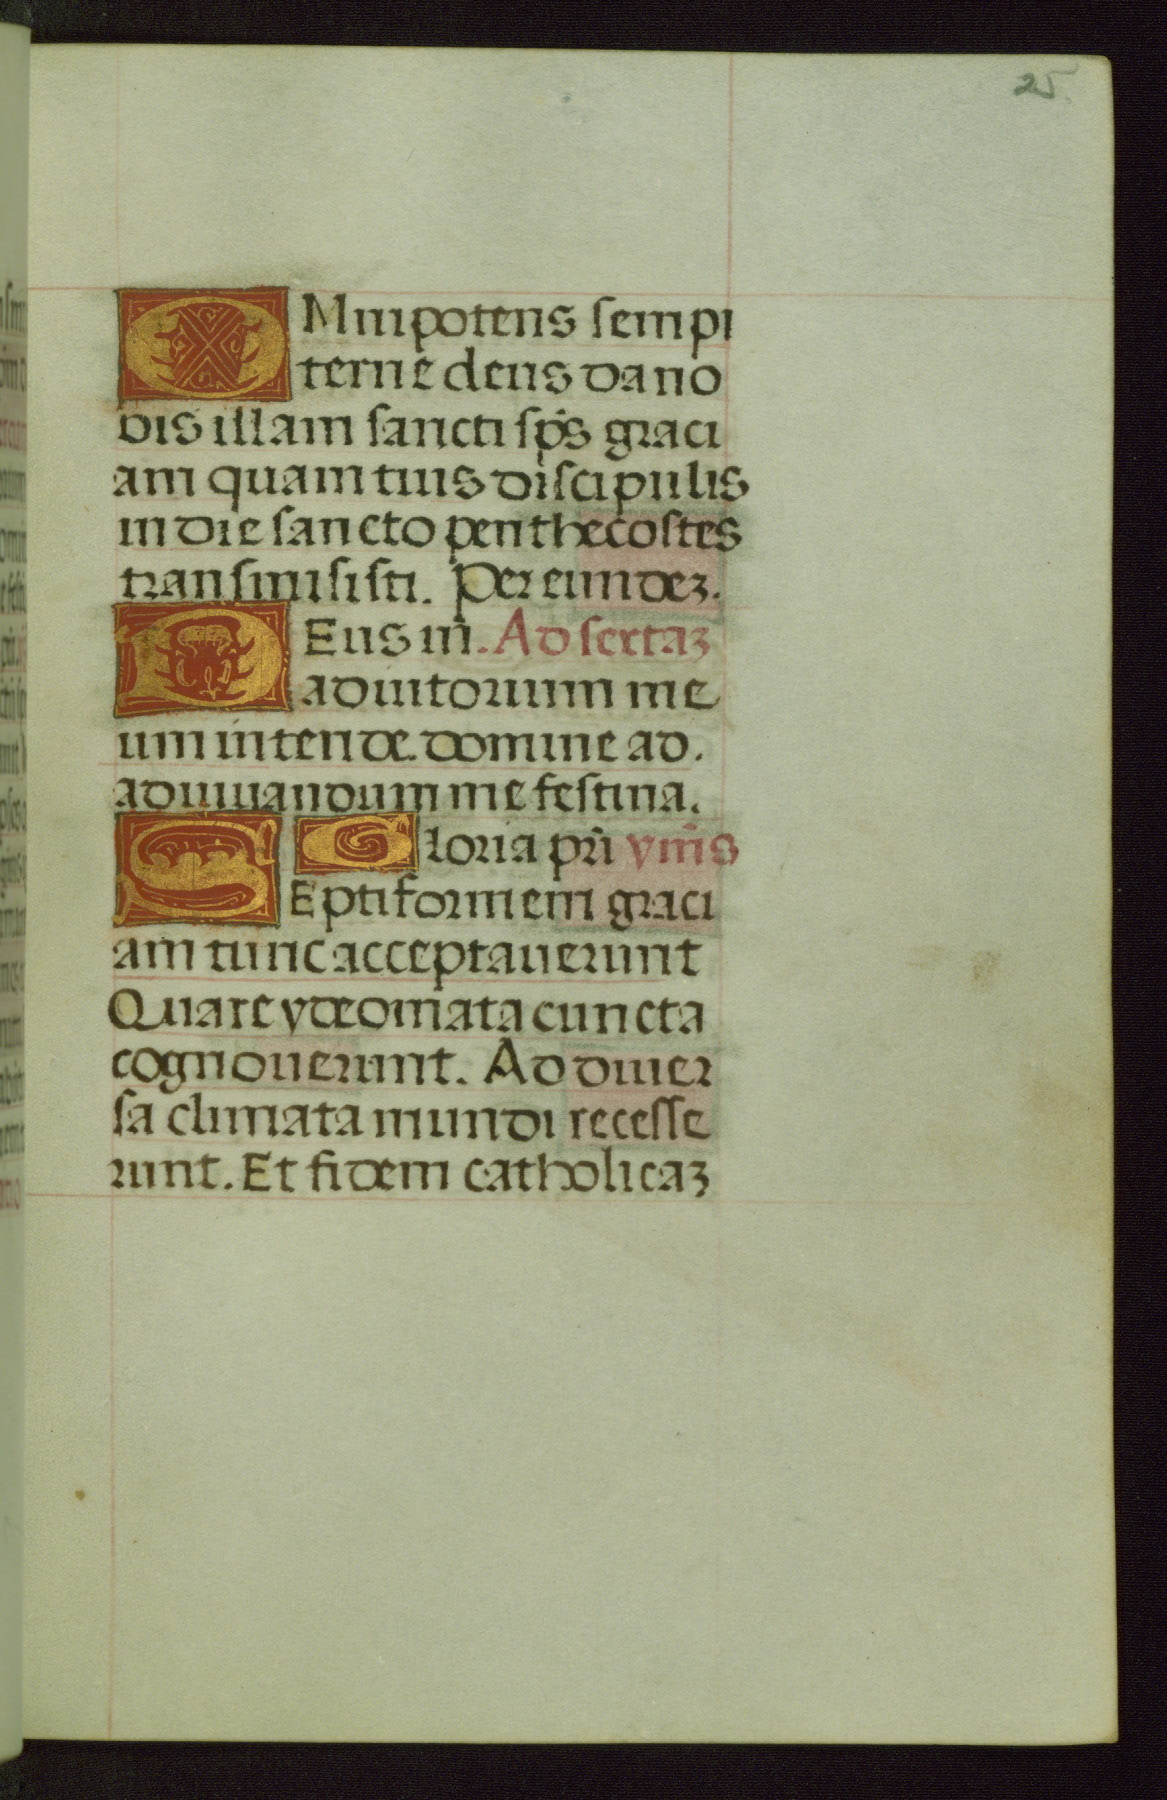 25.
OMnipotens sempi
terne deus da no
bis illam sancti sp̄s graci
am quam tuis discipulis
in die sancto penthecostes
transmisisti. Per eundez.
DEus in. Ad sextaz
adiutorium me
um intende. domine ad.
adiuuandum me festina.
Gloria pr̄i ymn̄s
SEptiformem graci
am tunc acceptauerunt
Quare ydeomata cuncta
cognouerunt. Ad diuer
sa climata mundi recesse
runt. Et fidem catholicaz